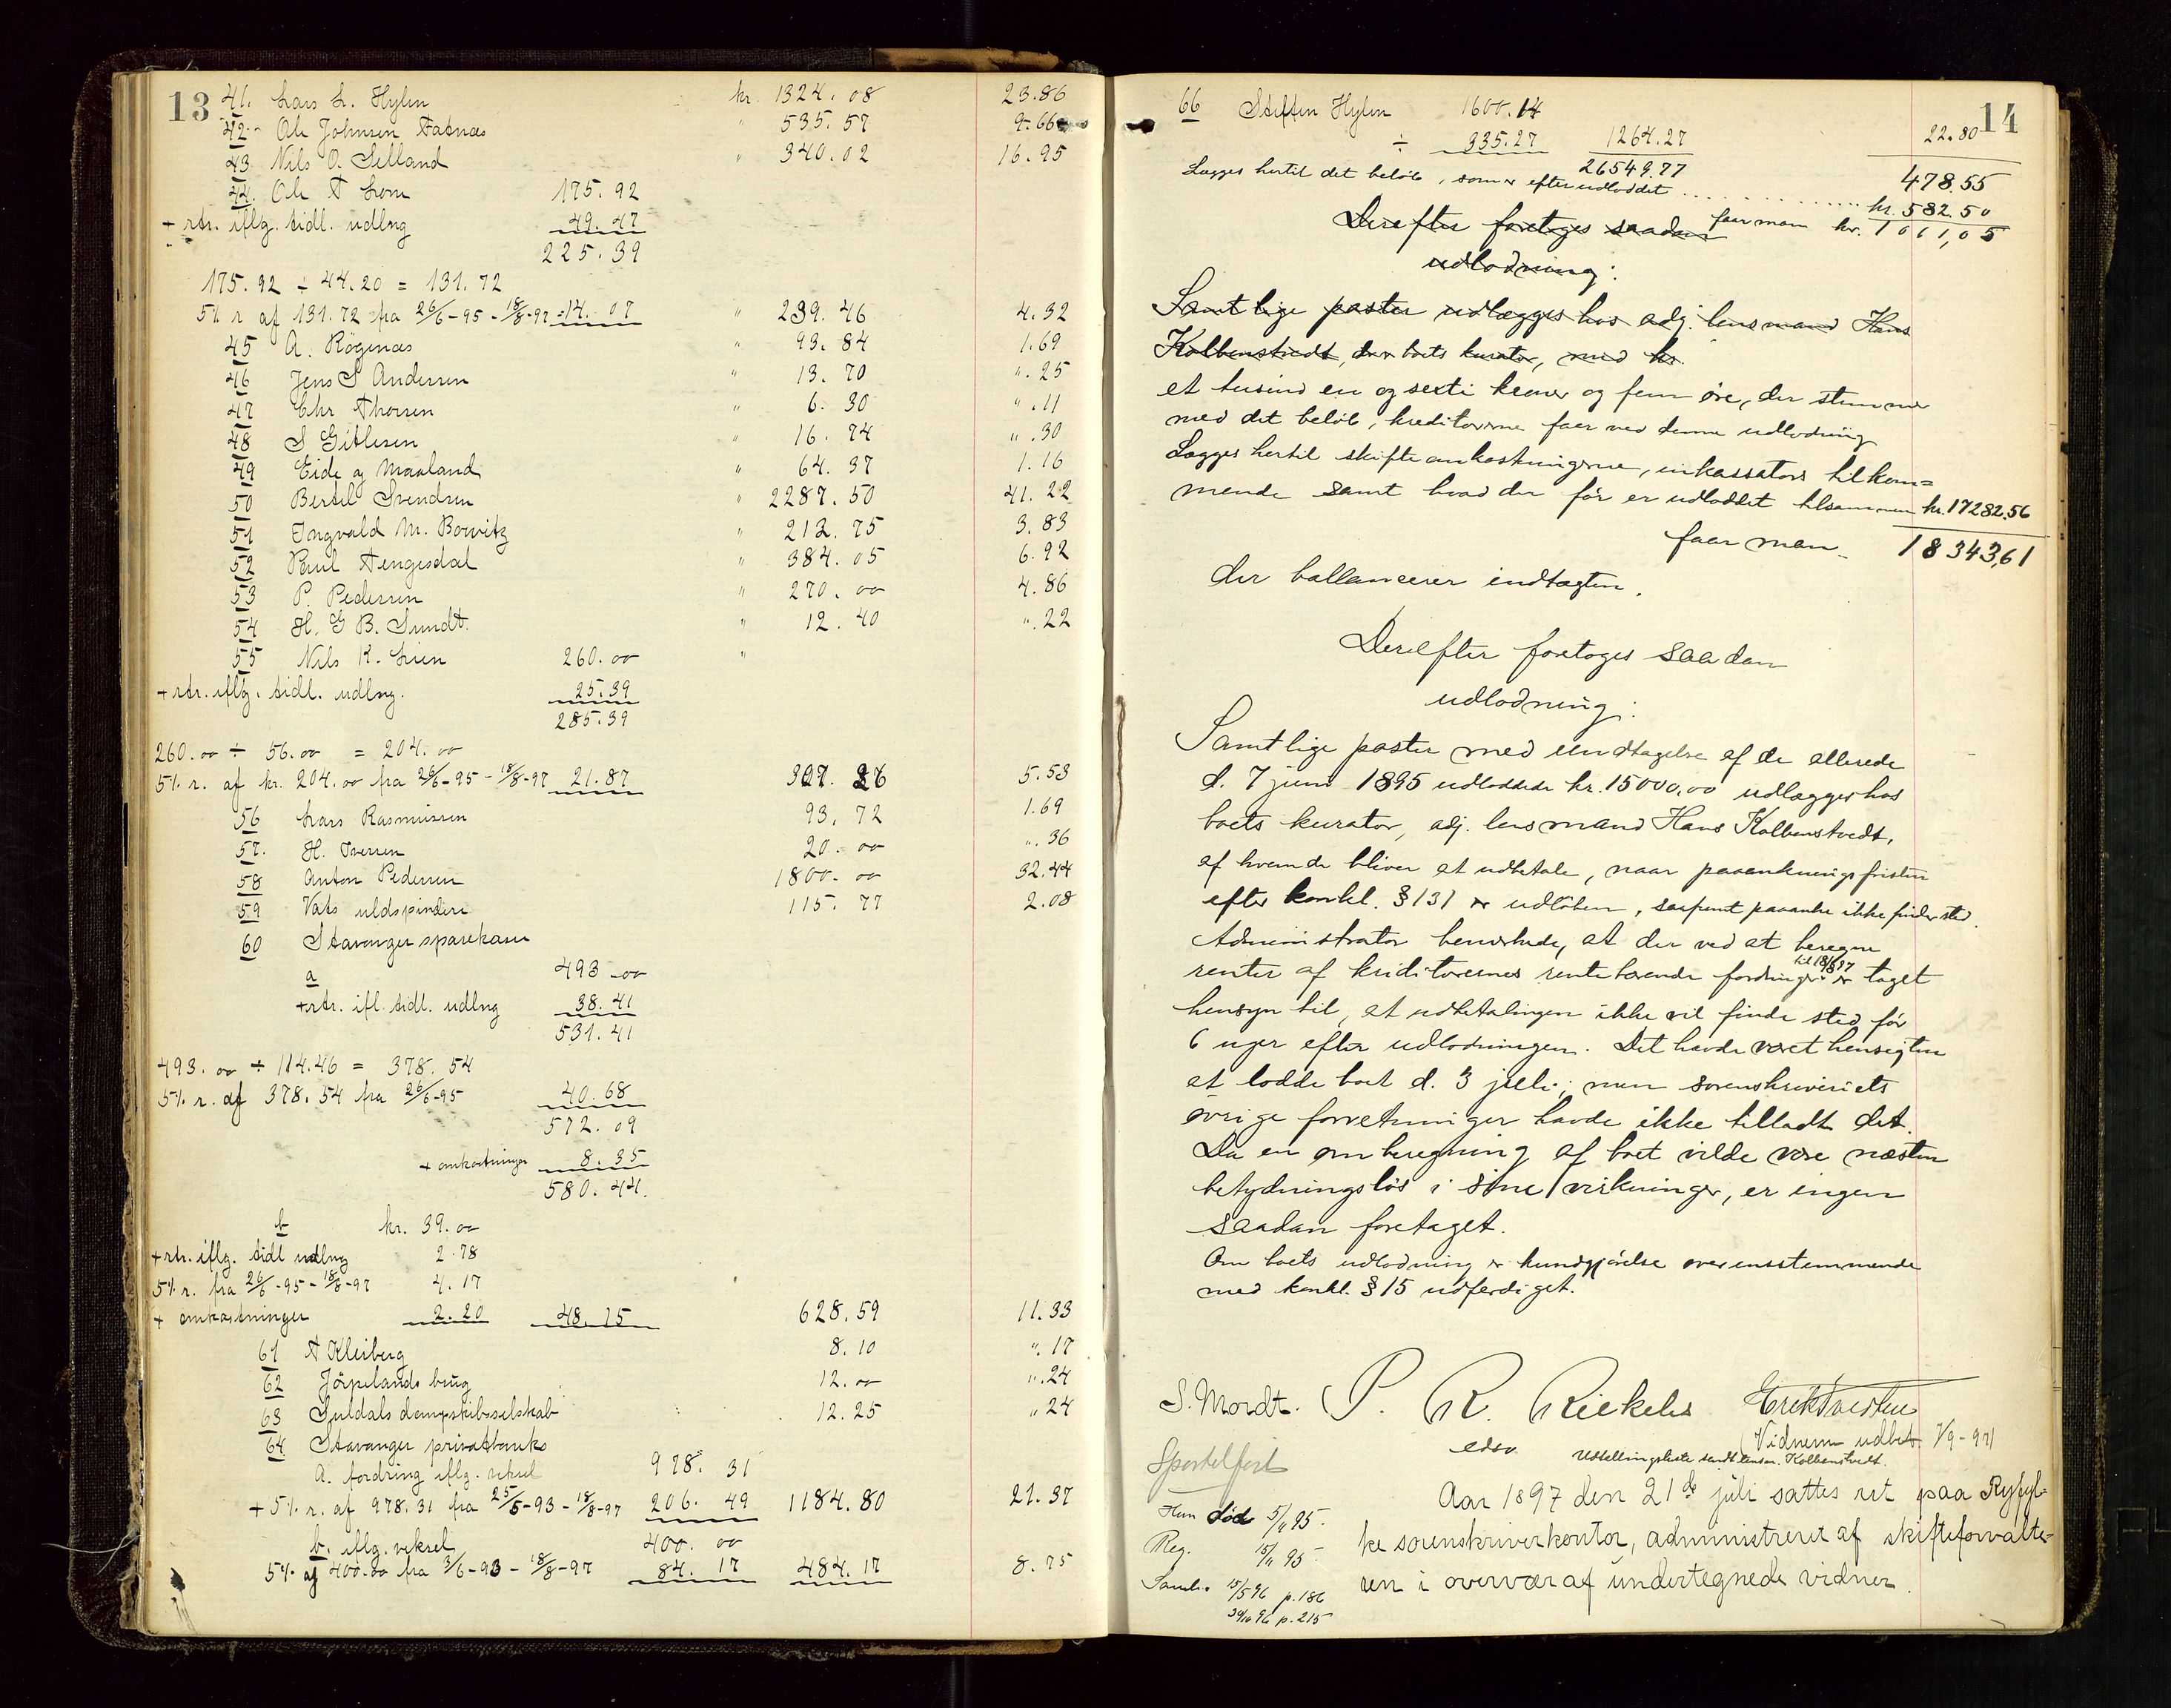 13
41. Lars L. Hylen kr. 1324.08 23.86
42. Ole Johnsen Fatnæs " 535.57 9.66
43 Nils O. Selland " 340.02 16.95
44. Ole T Lorn 175.92
+ rtr. iflg. tidl. udlng 49.47
225.39
175.92 ÷ 44.20 = 131.72
5% r af 131.72 fra 26/6-95 - 18/8-97 = 14.07 " 239.46 4.32
45 A. Rognæs " 93.84 1.69
46 Jens S Andersen " 13.70 ".25
47 Chr Thorsen " 6.30 ".11
48 S Gitlesen " 16.74 ".30
49 Eide og Maaland " 64.37 1.16
50 Bertel Svendsen " 2287.50 41.22
51 Ingvald M. Bowitz " 212.75 3.83
52 Paul Tengesdal " 384.05 6.92
53 P. Pedersen " 270.00 4.86
54 H. G B. Sundt. " 12.40 ".22
55 Nils K. Lien 260.00 "
+ rtr. iflg. tidl. udlng. 25.39
285.39
260.00 ÷ 56.00 = 204.00
5% r. af kr. 204.00 fra 26/6-95 - 18/8-97 21.87 307.26 5.53
56 Lars Rasmussen 93.72 1.69
57. H. Iversen 20.00 ".36
58 Anton Pedersen 1800.00 32.44
59 Vats uldspinderi 115.77 2.08
60 Stavanger sparekasse
a 493.00
+ rtr. ifl. tidl. udlng 38.41
531.41
493.00 ÷ 114.46 = 378.54
5% r. af 378.54 fra 26/6-95 40.68
572.09
+ omkostninger 8.35
580.44.
b kr. 39.00
+ rtr. iflg. tidl udlng 2.78
5% r. fra 26/6-95 - 18/8-97 4.17
+ omkostninger 2.20 48.15 628.59 11.33
61 T Kleiberg 8.10 ".17
62 Jörpelands brug 12.00 ".24
63 Suldals dampskibsselskab 12.25 ".24
64 Stavanger privatbank
a. fordring iflg. veksel 978.31
+ 5% r. af 978.31 fra 25/5-93 - 18/8-97 206.49 1184.80 21.37
b. iflg. veksel 400.00
5% af 400.00 fra 3/6-93 - 18/8-97 84.17 484.17 8.75
14
66 Steffen Hylen 1600.14
÷ 335.27 1264.27 22.80
26549.77 478.55
Lægges hertil det beløb, som er efterudloddet kr. 582.50
faar man kr. 1061,05
Derefter foretoges saadan
udlodning:
Samtlige poster udlægges hos adj. lensmand Hans
Kolbenstvedt, der boets kurator, med kr.
et tusind en og sexti kroner og fem øre, der stemmer
med det beløb, kreditorerne faar ved denne udlodning
Lægges hertil skifteomkostningerne, inkassators tilkom=
mende samt hvad der før er udloddet tilsammen kr. 17282,56
faar man 18343,61
der ballancerer indtægten.
Derefter foretoges saadan
udlodning:
Samtlige poster med undtagelse af de allerede
d. 7 juni 1895 udloddede kr. 15000,00 udlægges hos
boets kurator, adj. lensmand Hans Kolbenstvedt,
af hvem de bliver at udbetale, naar paaankningsfristen
efter konkl. § 131 er udløben, saafremt paaanke ikke finder sted.
Administrator bemærkede, at der ved at beregne
renter af kreditorernes rentebærende fordringer til 18/8 97 er taget
hensyn til, at udbetalingen ikke vil finde sted før
6 uger efter udlodningen. Det havde været hensigten
at lodde boet d. 3 juli; men sorenskriveriets
øvrige forretninger havde ikke tilladt det.
Da en omberegning af boet vilde være næsten
betydningsløs i sine virkninger, er ingen
saadan foretaget.
Om boets udlodning er kundgjørelse overensstemmende
med konkl. § 15 udfærdiget.
S. Mordt. P. R. Riekeles Erik Tveiten
edsv. Vidnerne udbet. 1/9-97
Udstillingsliste sendt lensm. Kolbenstvedt.
Sportelfrit
Aar 1897 den 21de juli sattes ret paa Ryfyl-
ke sorenskriverkontor, administreret af skifteforvalte-
ren i overvær af undertegnede vidner.
Hun død 5/11 95.
Reg. 15/11 95.
Saml. 15/5 96 p. 186
30/10 96 p. 215